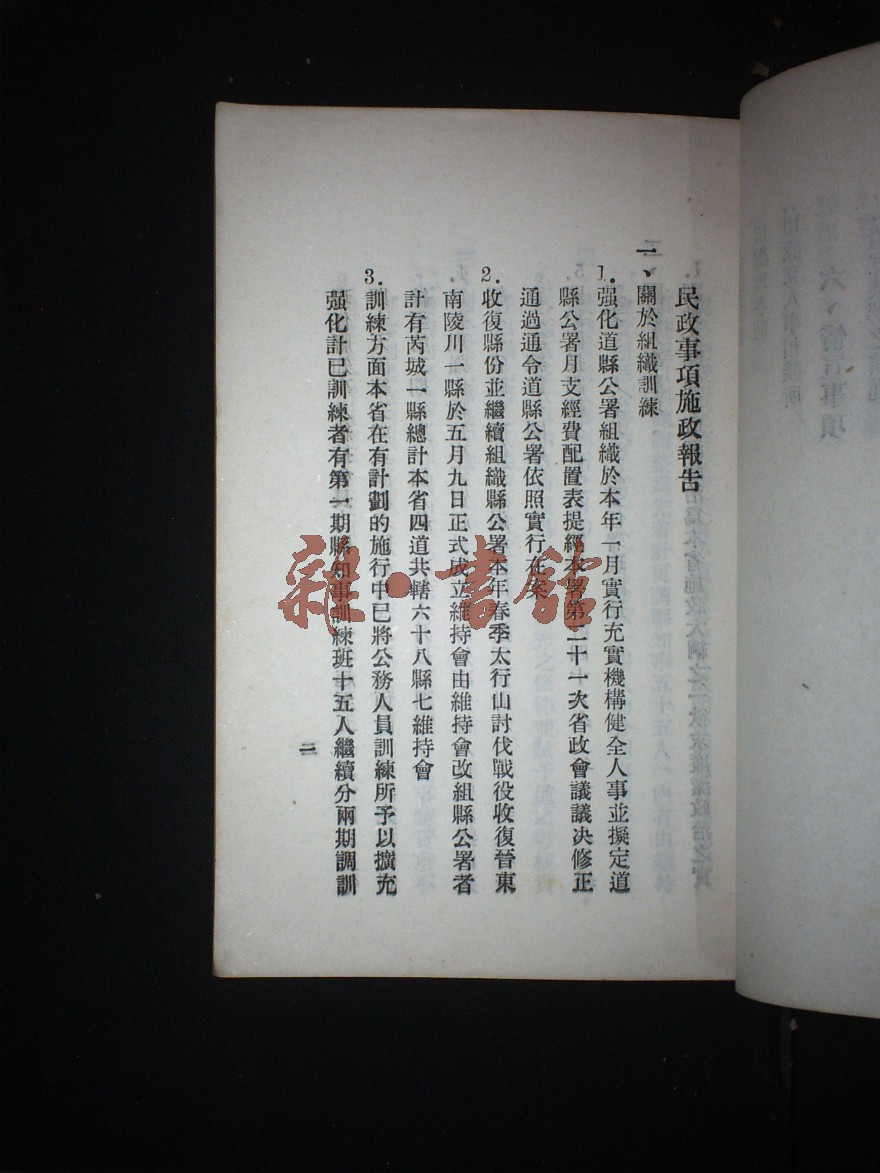 民政事項施政報告
一、關於組織訓練
1.强化道縣公署組織於本年一月實行充實機構健全人事並擬定道
縣公署月支經費配置表提經本署第二十一次省政會議議决修正
通過通令道縣公署依照實行在案
2.收復縣份並繼續組織縣公署本年春季太行山討伐戰役收復晉東
南陵川一縣於五月九日正式成立維持會由維持會改組縣公署者
計有芮城一縣總計本省四道共轄六十八縣七維持會
3.訓練方面本省在有計劃的施行中已將公務人員訓練所予以擴充
强化計已訓練者有第一期縣知事訓練班十五人繼續分兩期調訓
二
雜·書館